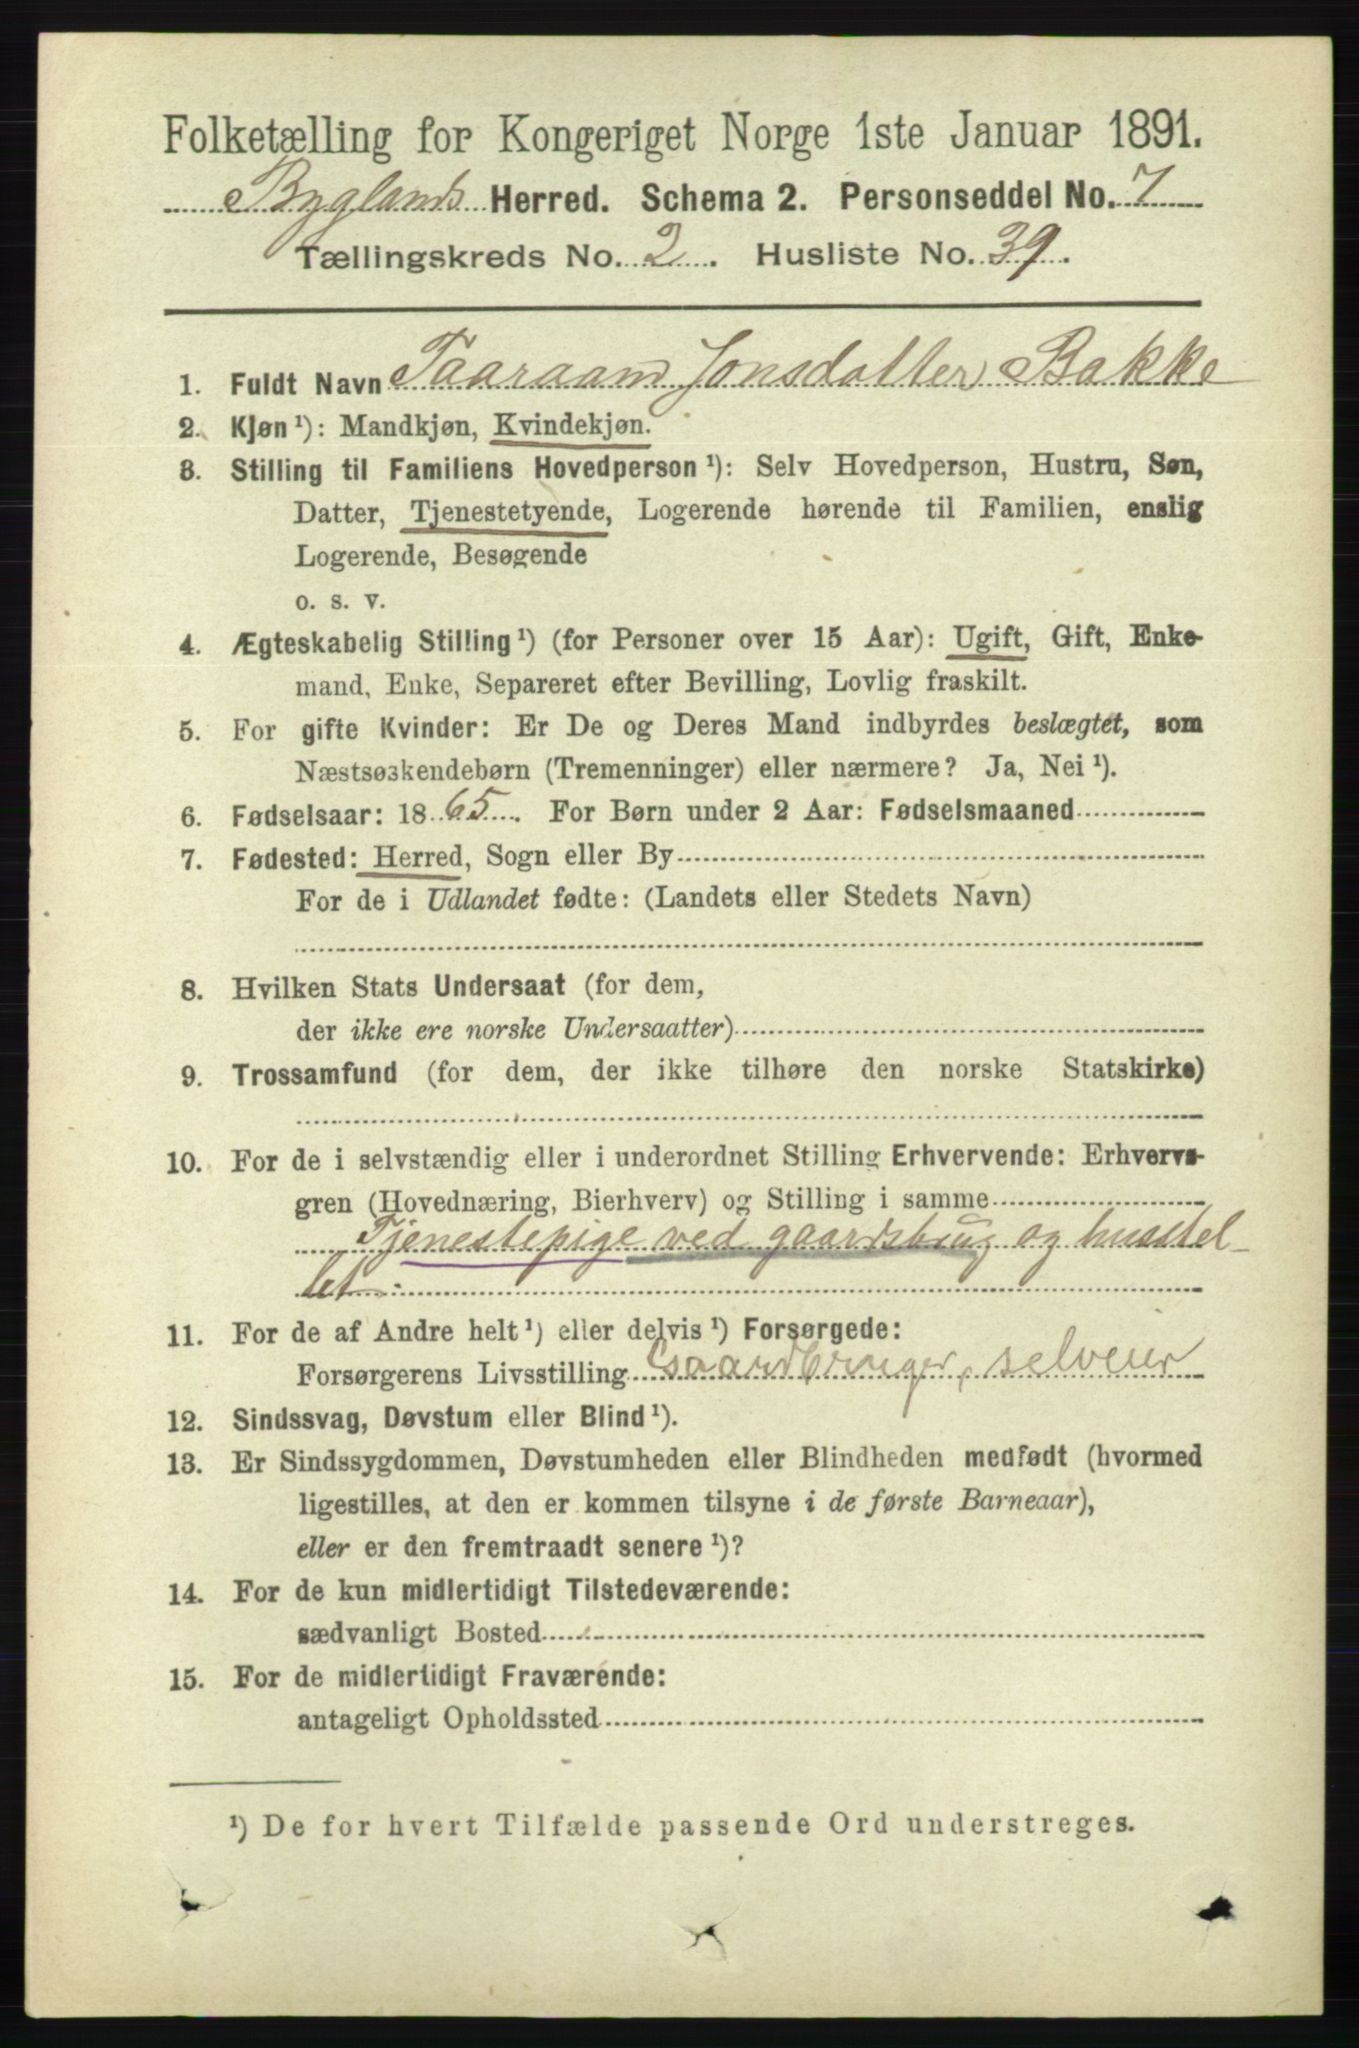 Folketælling for Kongeriget Norge 1ste Januar 1891.
Byglands Herred. Schema 2. Personseddel No. 7
Tællingskreds No. 2. Husliste No. 39.
1. Fuldt Navn Taaraan Jonsdatter Bakke
2. Kjøn ¹): Mandkjøn, Kvindekjøn.
3. Stilling til Familiens Hovedperson ¹): Selv Hovedperson, Hustru, Søn,
Datter, Tjenestetyende, Logerende hørende til Familien, enslig
Logerende, Besøgende
o. s. v.
4. Ægteskabelig Stilling ¹) (for Personer over 15 Aar): Ugift, Gift, Enke-
mand, Enke, Separeret efter Bevilling, Lovlig fraskilt.
5. For gifte Kvinder: Er De og Deres Mand indbyrdes beslægtet, som
Næstsøskendebørn (Tremenninger) eller nærmere? Ja, Nei ¹).
6. Fødselsaar: 1865. For Børn under 2 Aar: Fødselsmaaned
7. Fødested: Herred, Sogn eller By
For de i Udlandet fødte: (Landets eller Stedets Navn)
8. Hvilken Stats Undersaat (for dem,
der ikke ere norske Undersaatter)
9. Trossamfund (for dem, der ikke tilhøre den norske Statskirke)
10. For de i selvstændig eller i underordnet Stilling Erhvervende: Erhvervs-
gren (Hovednæring, Bierhverv) og Stilling i samme
Tjenestepige ved gaardsbrug og husstel-
let.
11. For de af Andre helt ¹) eller delvis ¹) Forsørgede:
Forsørgerens Livsstilling Gaardbruger, selveier
12. Sindssvag, Døvstum eller Blind ¹).
13. Er Sindssygdommen, Døvstumheden eller Blindheden medfødt (hvormed
ligestilles, at den er kommen tilsyne i de første Barneaar),
eller er den fremtraadt senere ¹)?
14. For de kun midlertidigt Tilstedeværende:
sædvanligt Bosted
15. For de midlertidigt Fraværende:
antageligt Opholdssted
¹) De for hvert Tilfælde passende Ord understreges.